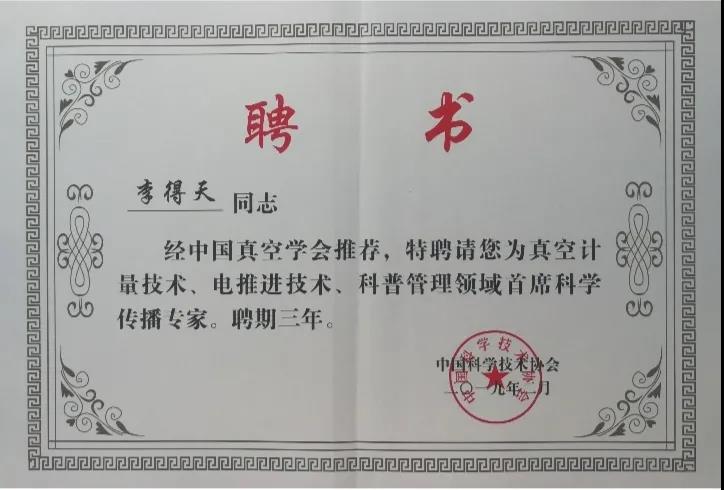 聘 书
李得天 同志
经中国真空学会推荐，特聘请您为真空计
量技术、电推进技术、科普管理领域首席科学
传播专家。聘期三年。
中国科学技术协会
二〇一九年二月
中国科学技术协会